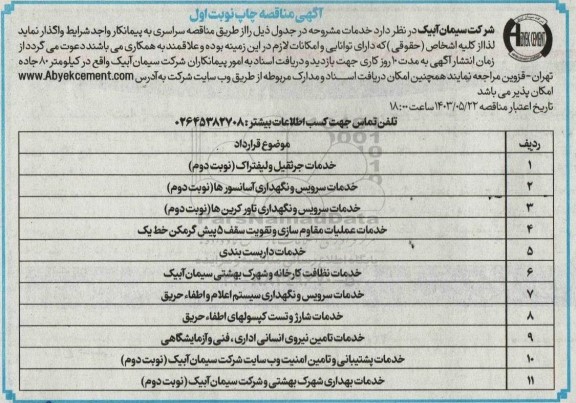 آگهی مناقصه چاپ نوبت اول
شرکت سیمان آبیک در نظر دارد خدمات مشروحه در جدول ذیل را از طریق مناقصه سراسری به پیمانکار واجد شرایط واگذار نماید
لذا از کلیه اشخاص (حقوقی) که دارای توانایی و امکانات لازم در این زمینه بوده و علاقمند به همکاری می باشند دعوت می گردد از
زمان انتشار آگهی به مدت ۱۰ روز کاری جهت بازدید و دریافت اسناد به امور پیمانکاران شرکت سیمان آبیک واقع در کیلومتر ۸۰ جاده
تهران - قزوین مراجعه نمایند همچنین امکان دریافت اسناد و مدارک مربوطه از طریق وب سایت شرکت به آدرس www.Abyekcement.com
امکان پذیر می باشد
تاریخ اعتبار مناقصه ۱۴۰۳/۰۵/۲۲ ساعت ۱۸:۰۰
ABYEK CEMENT
تلفن تماس جهت کسب اطلاعات بیشتر: ۰۲۶۴۵۳۸۲۷۰۸
ردیف موضوع قرارداد
۱ خدمات جرثقیل و لیفتراک (نوبت دوم)
۲ خدمات سرویس و نگهداری آسانسور ها (نوبت دوم)
۳ خدمات سرویس و نگهداری تاور کرین ها (نوبت دوم)
۴ خدمات عملیات مقاوم سازی و تقویت سقف ۵ پیش گرمکن خط یک
۵ خدمات داربست بندی
۶ خدمات نظافت کارخانه و شهرک بهشتی سیمان آبیک
۷ خدمات سرویس و نگهداری سیستم اعلام و اطفاء حریق
۸ خدمات شارژ و تست کپسولهای اطفاء حریق
۹ خدمات تامین نیروی انسانی اداری، فنی و آزمایشگاهی
۱۰ خدمات پشتیبانی و تامین امنیت وب سایت شرکت سیمان آبیک (نوبت دوم)
۱۱ خدمات بهداری شهرک بهشتی و شرکت سیمان آبیک (نوبت دوم)
ParsNamadData